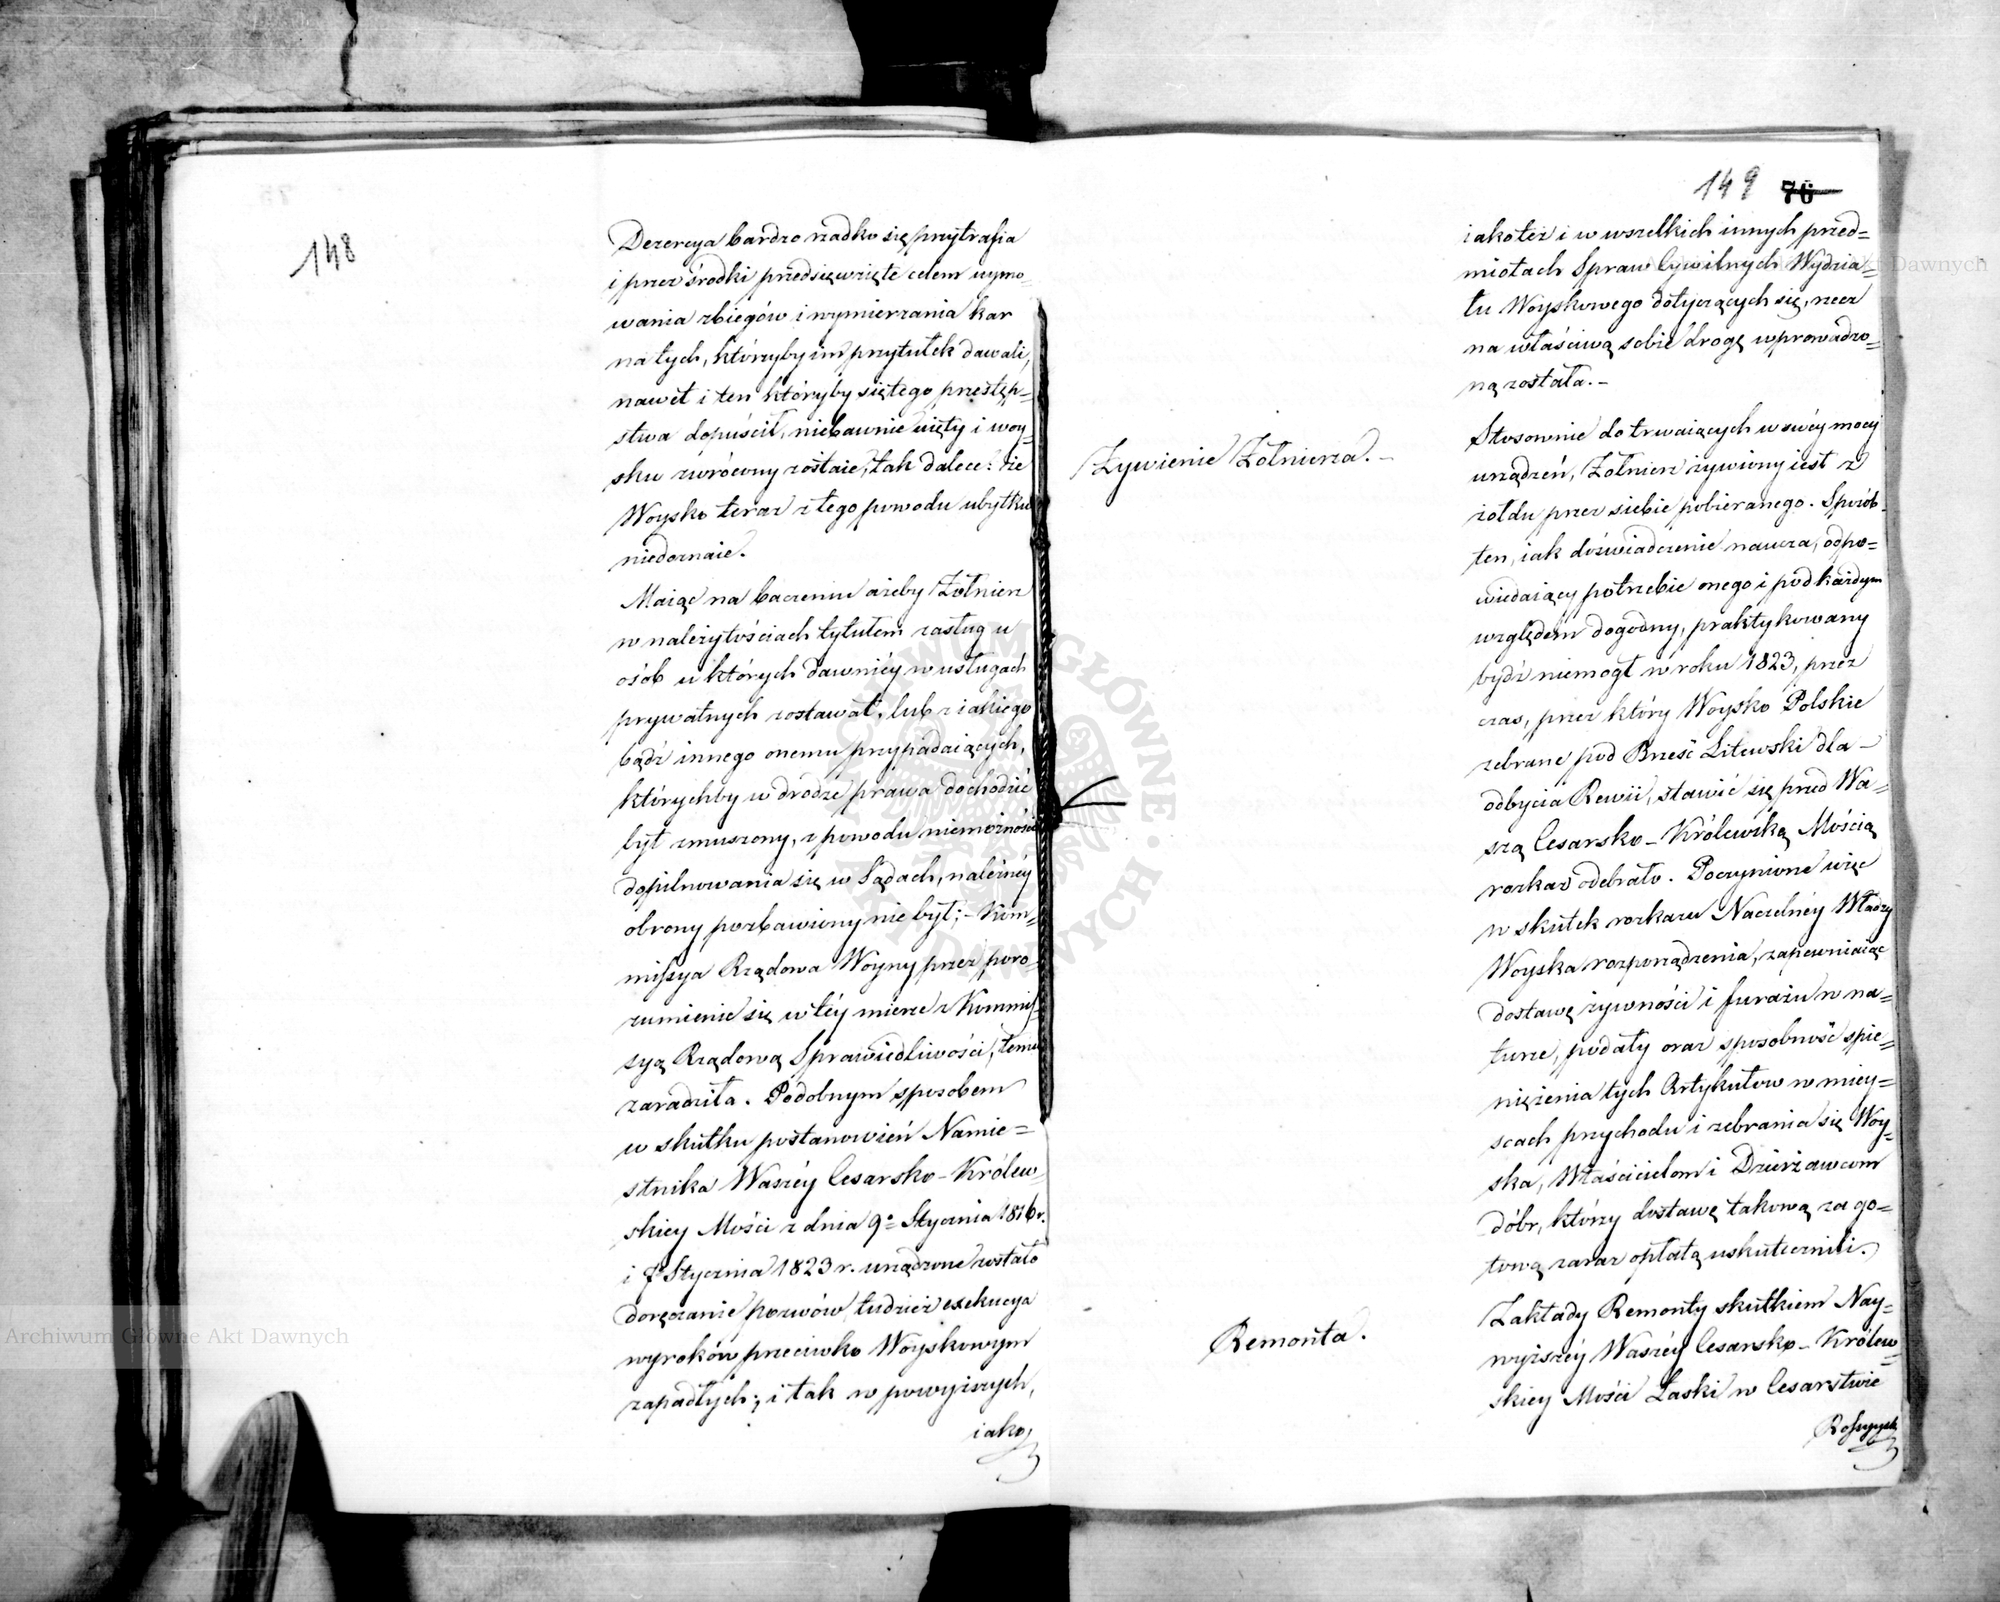 148
Dezercya bardzo rzadko się przytrafia
i przez środki przedsięwzięte celem uymo-
wania zbiegów i wymierzania kar
na tych, którzyby im przytułek dawali,
nawet i ten któryby się tego przestęp=
stwa dopuścił, niebawnie uięty i woy=
sku zwrócony zostaie, tak dalece: że
Woysko teraz z tego powodu ubytku
niedoznaie.
Maiąc na baczeniu ażeby Żołnierz
w należytościach tytułem zasług u
osób u których dawniéy w usługach
prywatnych zostawał, lub z iakiego
bądź innego onemu przypadaiących,
którychby w drodze prawa dochodzić
był zmuszony, z powodu niemożności
dopilnowania się w Sądach, należnéy
obrony pozbawiony nie był; – Kom=
missya Rządowa Woyny przez poro=
zumienie się w téy mierze z Kommis=
syą Rządową Sprawiedliwości, temu
zaradziła. Podobnym sposobem
w skutku postanowień Namie=
stnika Waszéy Cesarsko-Królew-
skiey Mości z dnia 9º Stycznia 1816 r.
i Stycznia 1823 r. urządzone zostało
doręczanie pozwów, tudzież exekucya
wyroków przeciwko Woyskowym
zapadłych; i tak w powyższych,
iako,
149 76
iakoteż i w wszelkich innych przed=
miotach Spraw Cywilnych Wydzia=
łu Woyskowego dotyczących się, rzecz
na właściwą sobie drogę wprowadzo=
ną została. –
Żywienie Żołnierza. –
Stosownie do trwaiących w swéy mocy
urządzeń, Żołnierz żywiony iest z
żołdu przez siebie pobieranego. Sposób
ten, iak doświadczenie naucza, odpo=
wiadaiący potrzebie onego i pod każdym
względem dogodny, praktykowany
bydź niemógł w roku 1823, przez
czas, przez który Woysko Polskie
zebrane pod Brześć Litewski dla –
odbycia Rewii, stawić się przed Wa=
szą Cesarsko-Królewską Mością
rozkaz odebrało. Poczynione więc
w skutek rozkazu Naczelnéy Władzy
Woyska rozporządzenia, zapewniaiąc
dostawę żywności i furażu w na=
turze, podały oraz sposobność spie=
niężenia tych Artykułow w miey=
scach przychodu i zebrania się Woy=
ska, Właścicielom i Dzierżawcom
dóbr, którzy dostawę takową za go=
tową zaraz opłatą uskutecznili.
Remonta.
Zakłady Remonty skutkiem Nay=
wyższéy Waszéy Cesarsko-Królew=
skiey Mości Łaski w Cesarstwie
Rossyysk
Archiwum Główne Akt Dawnych